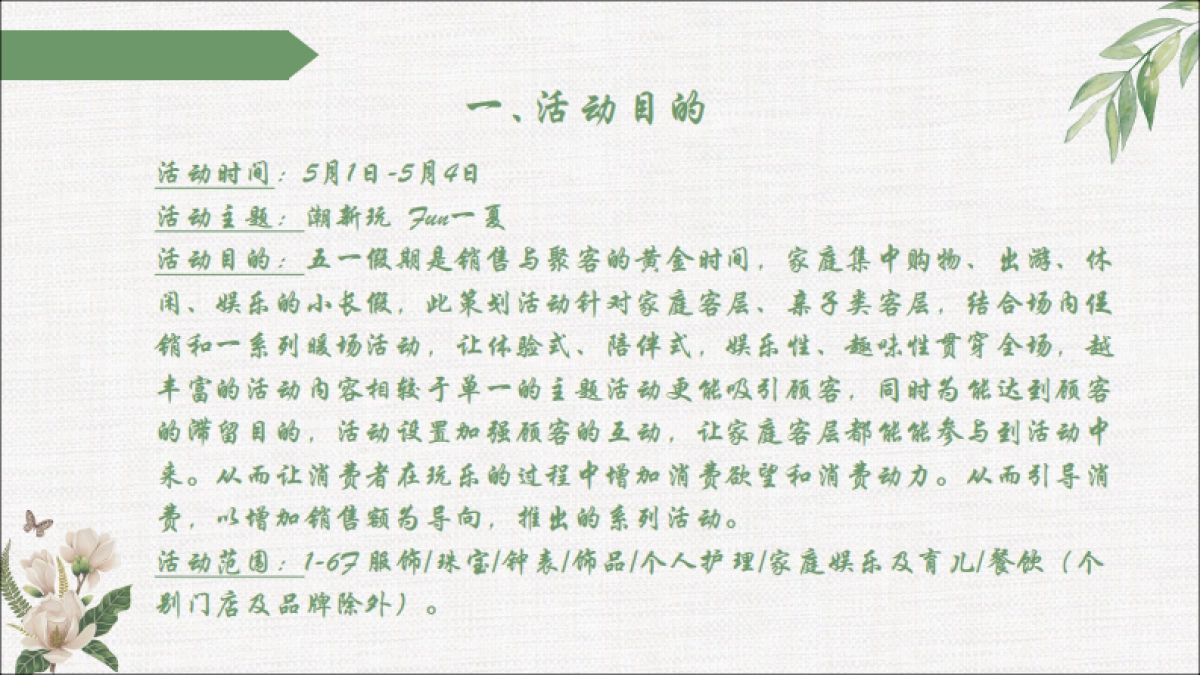 一、活动目的
活动时间：5月1日-5月4日
活动主题：潮新玩 Fun一夏
活动目的：五一假期是销售与聚客的黄金时间，家庭集中购物、出游、休
闲、娱乐的小长假，此策划活动针对家庭客层、亲子类客层，结合场内促
销和一系列暖场活动，让体验式、陪伴式，娱乐性、趣味性贯穿全场，越
丰富的活动内容相较于单一的主题活动更能吸引顾客，同时为能达到顾客
的滞留目的，活动设置加强顾客的互动，让家庭客层都能能参与到活动中
来。从而让消费者在玩乐的过程中增加消费欲望和消费动力。从而引导消
费，以增加销售额为导向，推出的系列活动。
活动范围：1-6F 服饰/珠宝/钟表/饰品/个人护理/家庭娱乐及育儿/餐饮（个
别门店及品牌除外）。